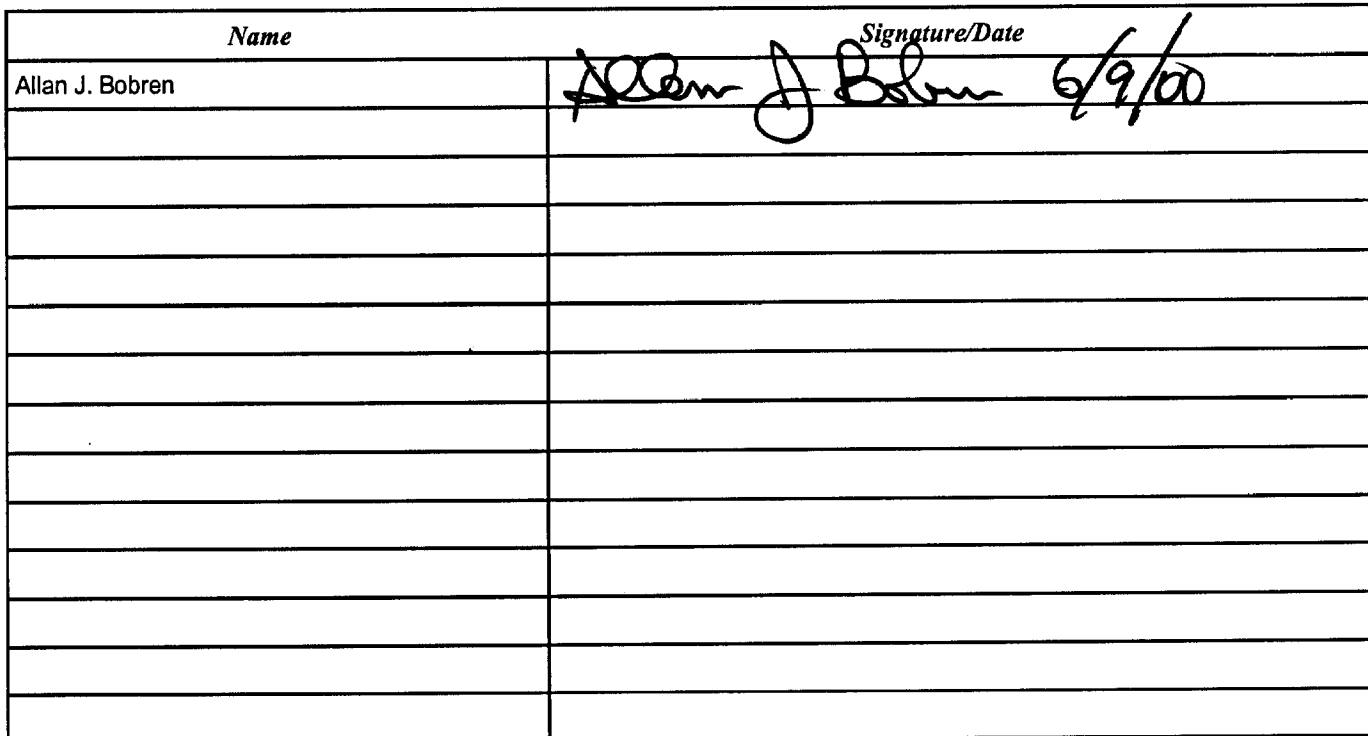 Name Signature/Date
Allan J. Bobren Allan J Bobren 6/9/00